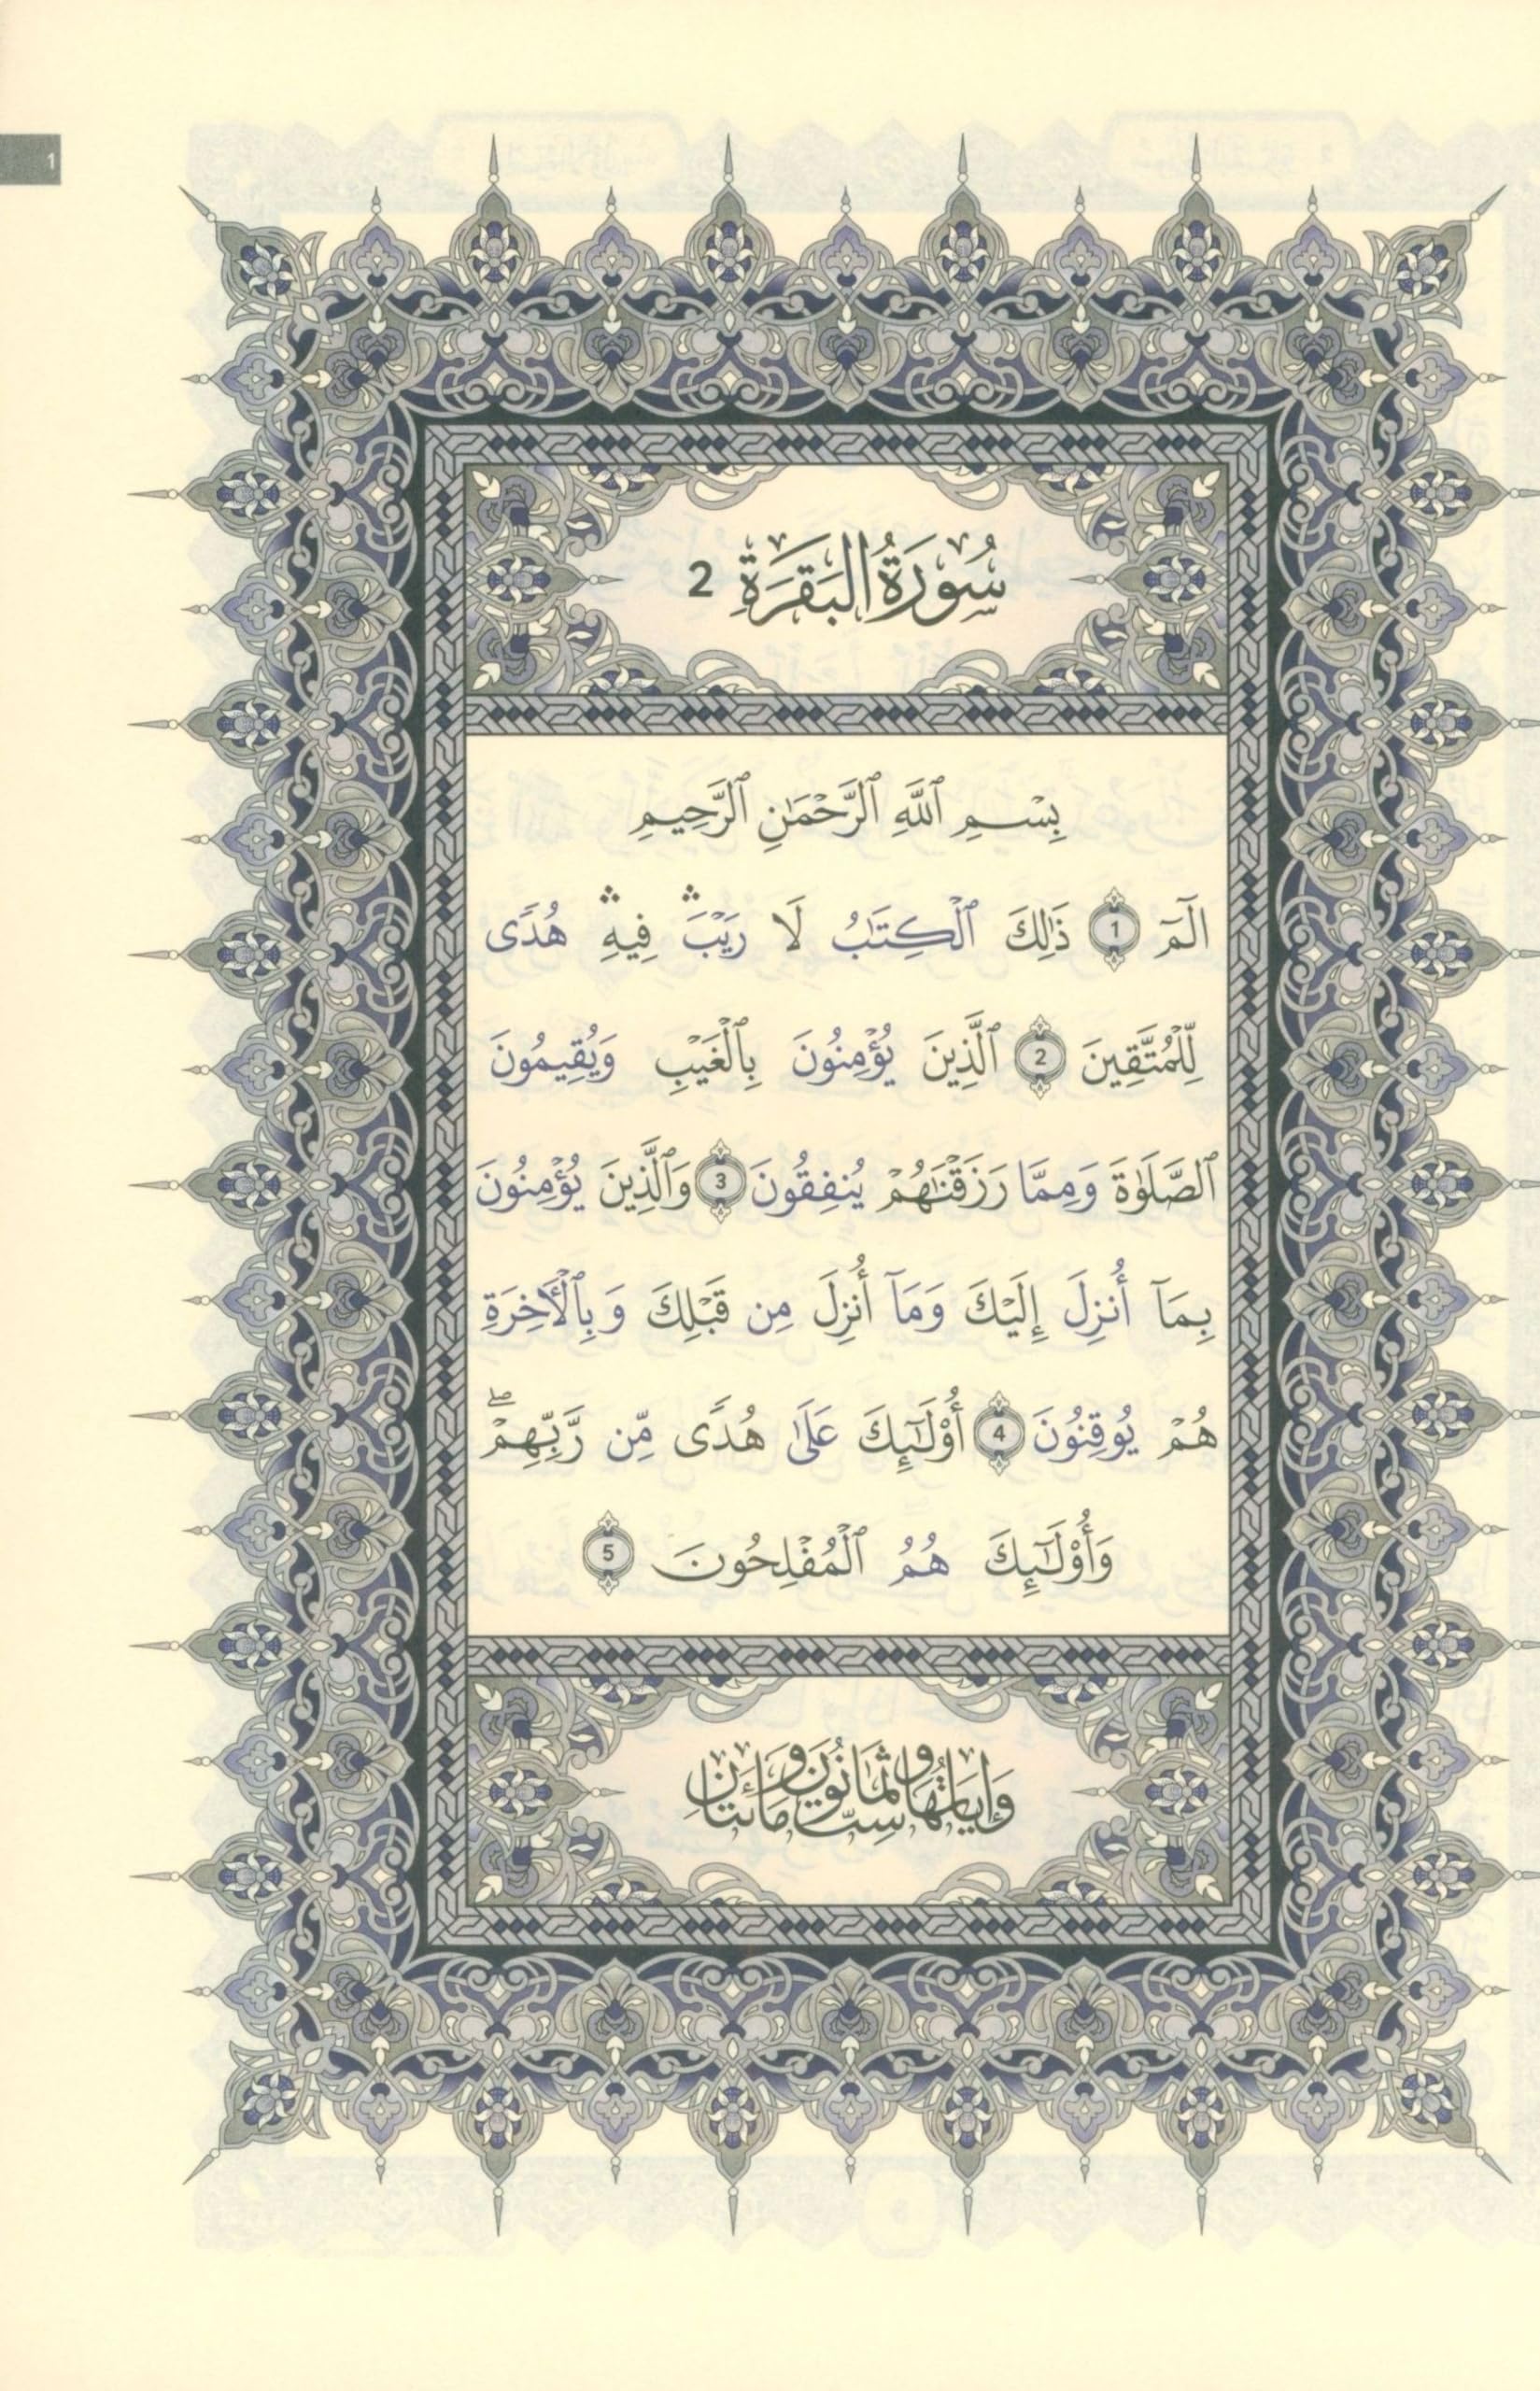 1
سُورَةُ البَقَرَةِ 2
بِسْمِ ٱللَّهِ ٱلرَّحْمَٰنِ ٱلرَّحِيمِ
الٓمٓ 1 ذَٰلِكَ ٱلْكِتَٰبُ لَا رَيْبَ ۛ فِيهِ ۛ هُدًى
لِّلْمُتَّقِينَ 2 ٱلَّذِينَ يُؤْمِنُونَ بِٱلْغَيْبِ وَيُقِيمُونَ
ٱلصَّلَوٰةَ وَمِمَّا رَزَقْنَٰهُمْ يُنفِقُونَ 3 وَٱلَّذِينَ يُؤْمِنُونَ
بِمَآ أُنزِلَ إِلَيْكَ وَمَآ أُنزِلَ مِن قَبْلِكَ وَبِٱلْأَخِرَةِ
هُمْ يُوقِنُونَ 4 أُوْلَٰٓئِكَ عَلَىٰ هُدًى مِّن رَّبِّهِمْ ۖ
وَأُوْلَٰٓئِكَ هُمُ ٱلْمُفْلِحُونَ 5
وَاٰيَاتُهَا سِتٌّ وَثَمَانُونَ وَمَائَتَانِ